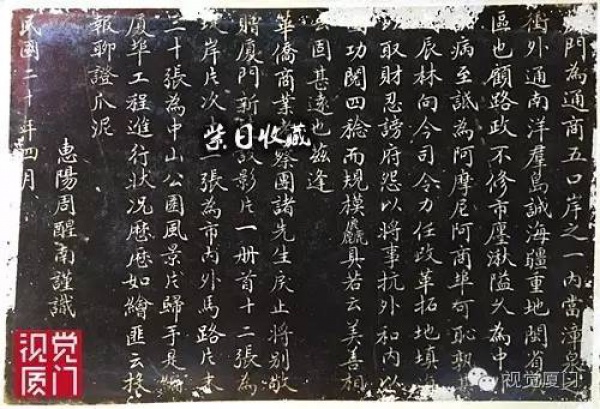 廈門為通商五口岸之一內當漳泉
衝外通南洋羣島誠海疆重地閩省
區也顧路政不修市廛湫隘久為中
病至誠為阿摩尼阿商埠可恥孰甚
辰林向今司令力任政革拓地填海
以取財忍謗府怨以將事抗外和內以
功閱四稔而規模麤具若云美善相
云固甚遠也兹逢
華僑商業考察團諸先生戾止將別敬
贈廈門新影片一册首十二張為
堤岸片次一張為市內外馬路片末
二十張為中山公園風景片歸手是編
廈埠工程進行狀况歷歷如繪匪云投
報聊證爪泥
惠陽周醒南謹識
民國二十年四月
柴日收藏
视觉厦门
视觉厦门